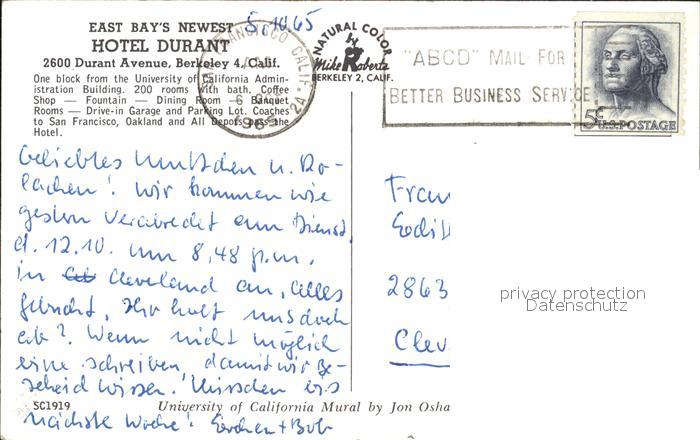 EAST BAY'S NEWEST
5.10.65
HOTEL DURANT
2600 Durant Avenue, Berkeley 4, Calif.
One block from the University of California Admin-
istration Building. 200 rooms with bath. Coffee
Shop — Fountain — Dining Room — Banquet
Rooms — Drive-in Garage and Parking Lot. Coaches
to San Francisco, Oakland and All Depots pass the
Hotel.
NATURAL COLOR
Mike Roberts
BERKELEY 2, CALIF.
FRANCISCO CALIF.
6 OCT
1965
2A
"ABCD" MAIL FOR
BETTER BUSINESS SERVICE
5¢ U.S. POSTAGE
Geliebtes u. Do-
lachen! Wir kommen wie
gestern verabredet am Dienst.
d. 12.10. um 8,48 p.m.
in Cleveland an. Alles
gebucht. Ihr holt uns doch
ab? Wenn nicht möglich
eine schreiben, damit wir Be-
scheid wissen. bis
nächste Woche! + Bob
Fran
Edi
2863
Clev
privacy protection
Datenschutz
SC1919
University of California Mural by Jon Osha